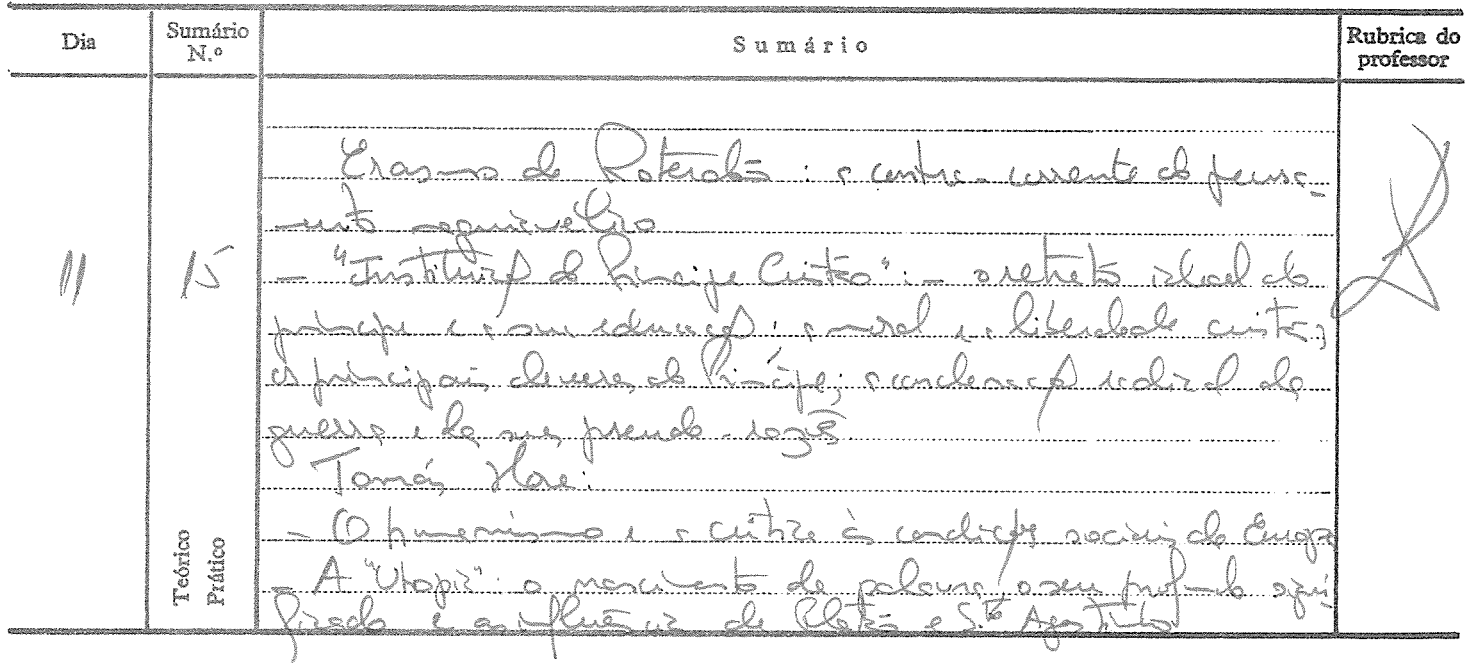 Dia
Sumário N.º
Sumário
Rubrica do professor
11
15
Teórico
Prático
Erasmo de Roterdão : a contra-corrente do pensa-
mento maquiavélico
- "Instituição do Príncipe Cristão" : - o retrato ideal do
príncipe e a sua educação : a moral e a liberdade cristã;
os principais deveres do Príncipe; a condenação radical da
guerra e das suas pseudo-razões
Tomás More:
- O humanismo e a crítica às condições sociais da Europa
- A "Utopia": o nascimento da palavra, o seu profundo signi
ficado e as influências de Platão e S.to Agostinho